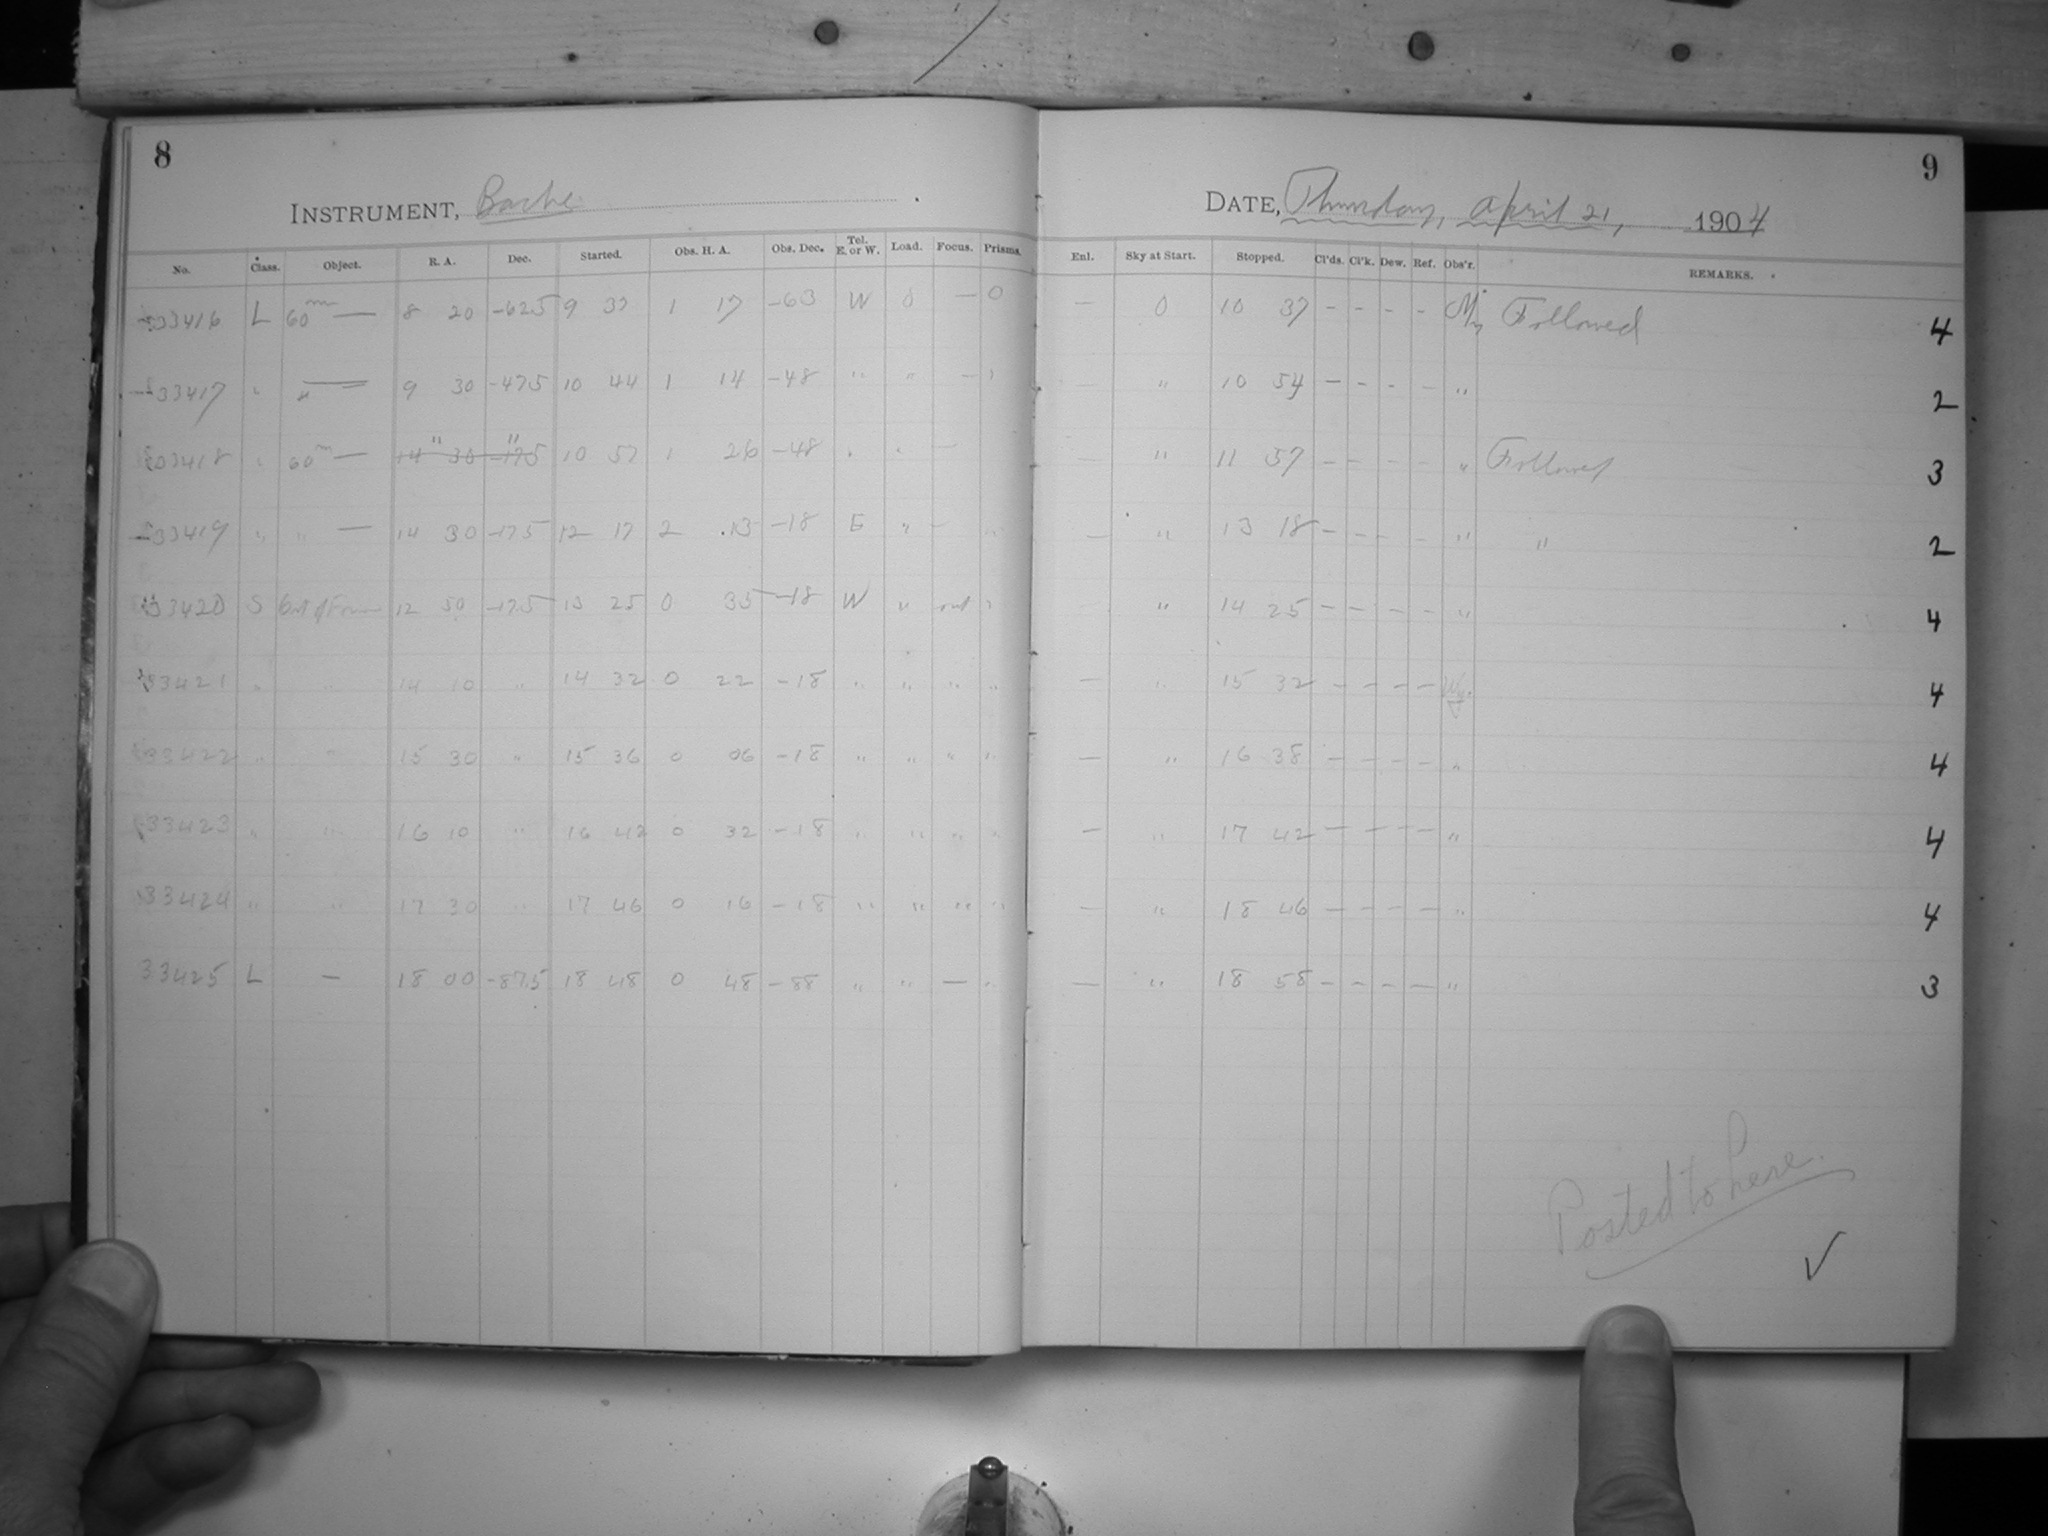 8
INSTRUMENT, Bache
No. Class. Object. R. A. Dec. Started. Obs. H. A. Obs. Dec. Tel. E. or W. Load. Focus. Prisms.
33416 L 60m — 8 20 -62.5 9 37 1 17 -63 W 0 — 0
33417 " " — 9 30 -47.5 10 44 1 14 -48 " " — "
33418 " 60m — " 14 30 " -17.5 10 57 1 26 -48 " " —
33419 " " — 14 30 -17.5 12 17 2 13 -18 E " — "
33420 S Out of Focus 12 50 -17.5 13 25 0 35 -18 W " out "
33421 " " 14 10 " 14 32 0 22 -18 " " " "
33422 " " 15 30 " 15 36 0 06 -18 " " " "
33423 " " 16 10 " 16 42 0 32 -18 " " " "
33424 " " 17 30 " 17 46 0 16 -18 " " " "
33425 L — 18 00 -87.5 18 48 0 48 -88 " " — "
9
DATE, Thursday, April 21, 1904
Enl. Sky at Start. Stopped. Cl'ds. Cl'k. Dew. Ref. Obs'r. REMARKS.
— 0 10 37 - - - - My Followed 4
— " 10 54 - - - - " 2
— " 11 57 - - - - " Followed 3
— " 13 18 - - - - " " 2
— " 14 25 - - - - " 4
— " 15 32 - - - - Wy. 4
— " 16 38 - - - - " 4
— " 17 42 - - - - " 4
— " 18 46 - - - - " 4
— " 18 58 - - - - " 3
Posted to here.
✓